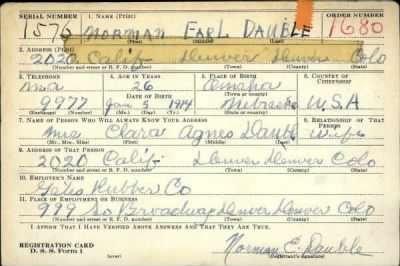 SERIAL NUMBER 1. NAME (Print) ORDER NUMBER
1576 NORMAN EARL DAUBLE 1680
(First) (Middle) (Last)
2. ADDRESS (Print)
2020 Calif. Denver Denver Colo
(Number and street or R. F. D. number) (Town) (County) (State)
3. TELEPHONE 4. AGE IN YEARS 5. PLACE OF BIRTH 6. COUNTRY OF CITIZENSHIP
26 Omaha
DATE OF BIRTH
9977 Jan 5 1914 Nebraska U.S.A
(Exchange) (Number) (Mo.) (Day) (Yr.) (State or country)
7. NAME OF PERSON WHO WILL ALWAYS KNOW YOUR ADDRESS 8. RELATIONSHIP OF THAT PERSON
Mrs Clara Agnes Dauble wife
(Mr., Mrs., Miss) (First) (Middle) (Last)
9. ADDRESS OF THAT PERSON
2020 Calif. Denver Denver Colo
(Number and street or R. F. D. number) (Town) (County) (State)
10. EMPLOYER'S NAME
Gates Rubber Co
11. PLACE OF EMPLOYMENT OR BUSINESS
999 So Broadway Denver Denver Colo
(Number and street or R. F. D. number) (Town) (County) (State)
I AFFIRM THAT I HAVE VERIFIED ABOVE ANSWERS AND THAT THEY ARE TRUE.
REGISTRATION CARD
D. S. S. Form 1
Norman E. Dauble
(Registrant's signature)